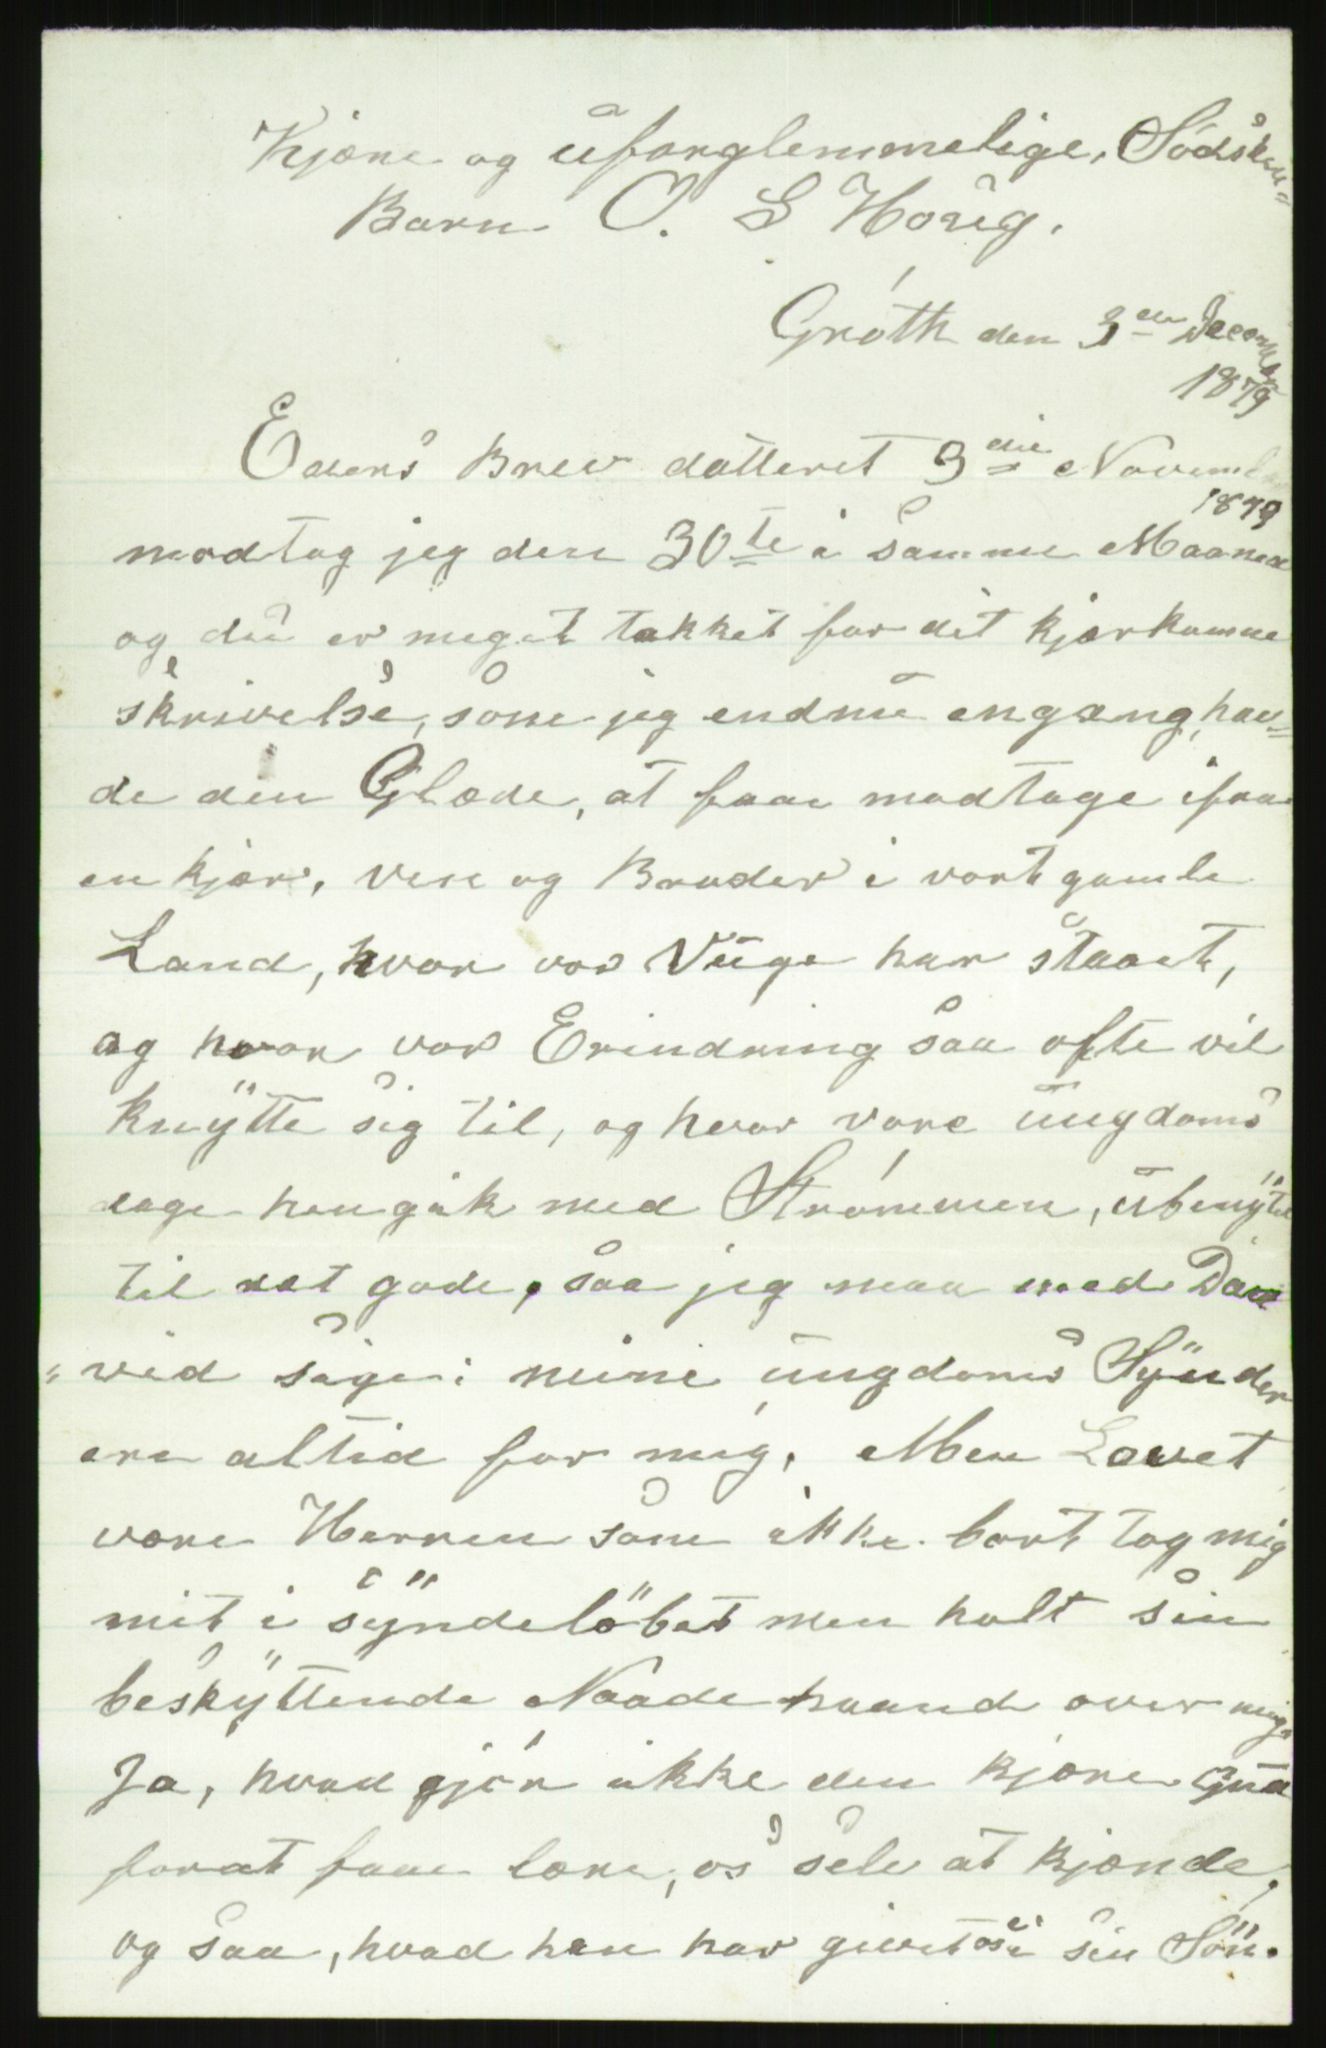 Kjære og uforglemmelige, Södsken-
Barn O. S Houg.
Gróth den 3en December
1879
Eders Brev datteret 3die November
1879
modtog jeg den 30te i samme Maaned
og du er meget takket for dit kjærkomne
skrivelse, som jeg endnu engang, hav=
de den Glæde, at faae modtage ifraa
en kjær, ven og Broder i vort gamle
Land, hvor vor Vuge har staaet,
og hvor vor Erindring saa ofte vil
knytte sig til, og hvor vore ungdoms
dage hengik med Strömmen, ubenyttet
til det gode, saa jeg maa med Da
"vid sige: mine ungdoms Synder
ere altid for mig, Men Lovet
være Herren som ikke bort tog mig
mit i syndelöbet men holt sin
beskyttende Naade haand over mig
Ja, hvad gjör ikke den kjære Gud
forat faae lære, os sele at kjænde,
og saa, hvad han har givet os i sin Sön.